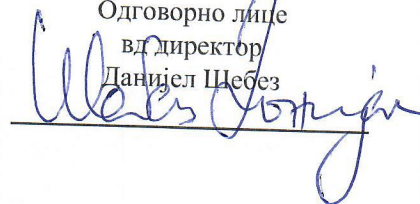 Одговорно лице
вд директор
Данијел Шебез